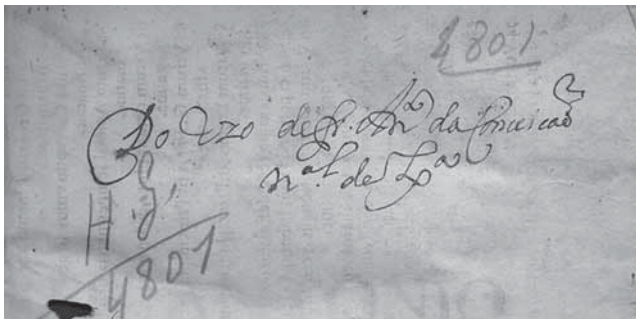 4801
Do Uzo de fr. Antº da Conceicaõ
n.al de Lxa
H. g.
4801